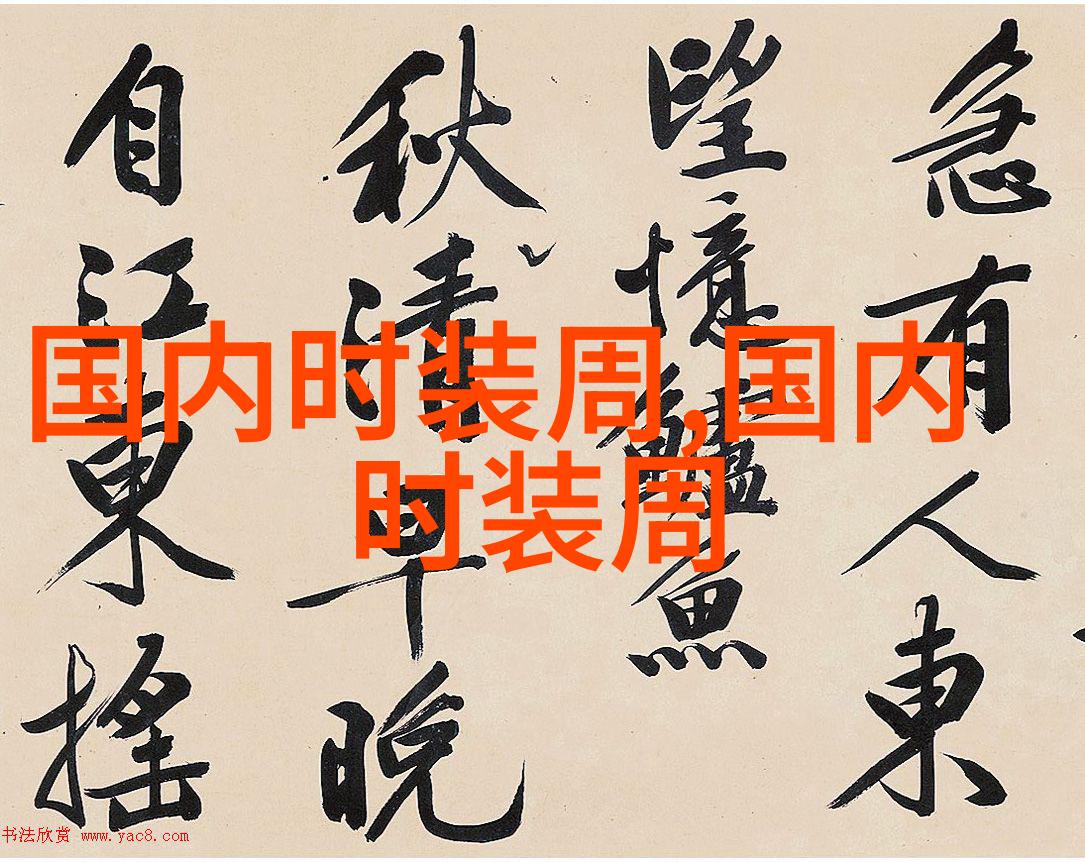 国内时装周,国内
时装周
急有人東
望憶鱸魚
秋清早晚
自江東搖
书法欣赏 www.yac8.com